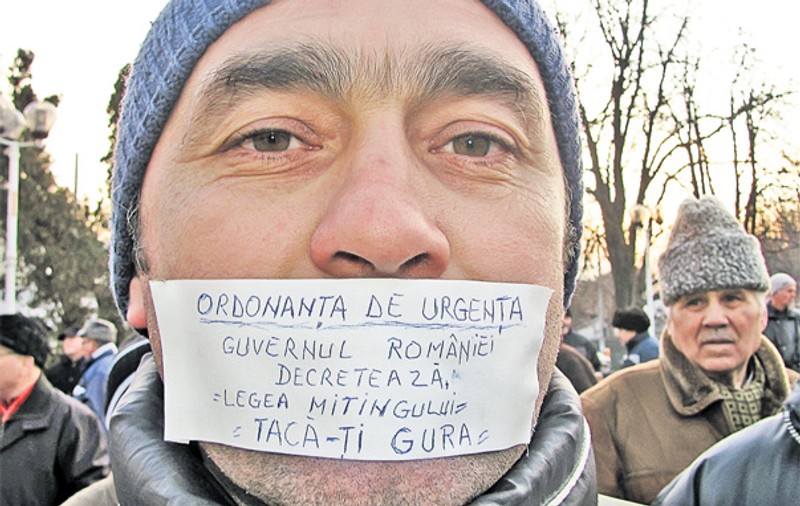 ORDONANȚA DE URGENȚA
GUVERNUL ROMÂNIEI
DECRETEAZĂ,
=LEGEA MITINGULUI=
= TACĂ-ȚI GURA =